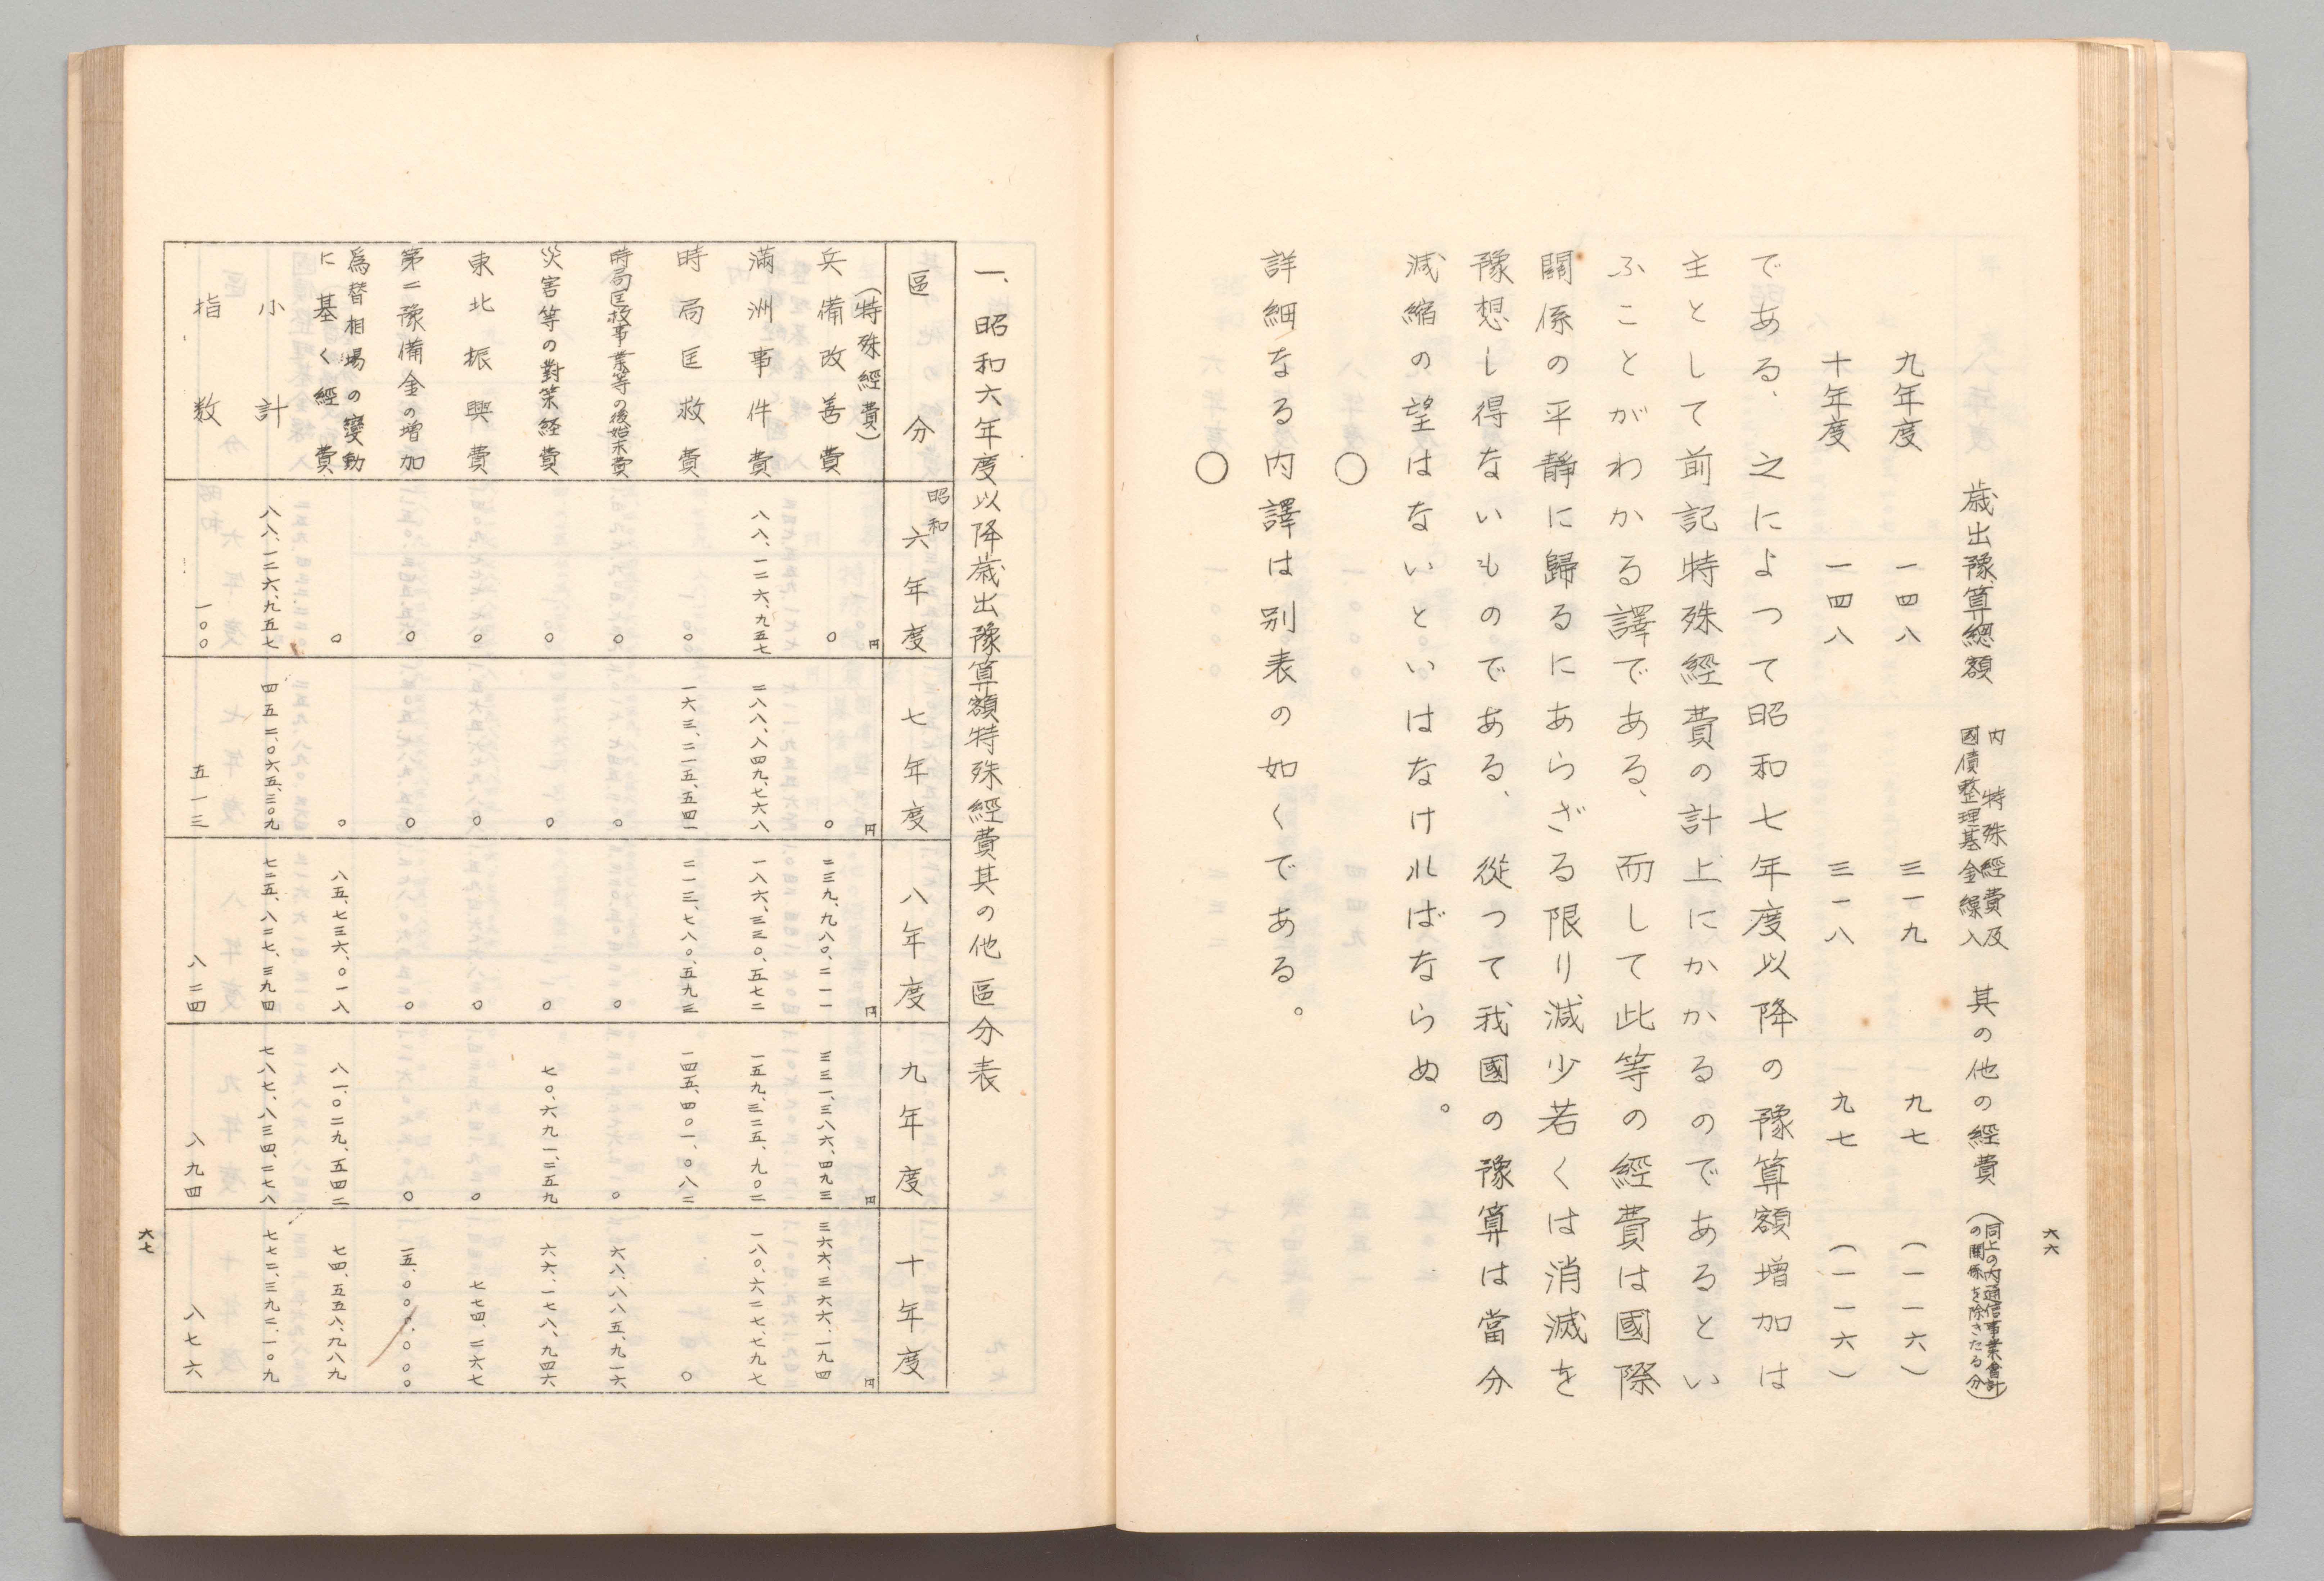 六六
歳出豫算總額　内　特殊經費及國債整理基金繰入　其の他の經費　（同上の内通信事業會計の關係を除きたる分）
九年度　一四八　三一九　九七　（一一六）
十年度　一四八　三一八　九七　（一一六）
である、之によつて昭和七年度以降の豫算額増加は
主として前記特殊經費の計上にかかるのであるとい
ふことがわかる譯である、而して此等の經費は國際
關係の平靜に歸るにあらざる限り減少若くは消滅を
豫想し得ないものである、從つて我國の豫算は當分
減縮の望はないといはなければならぬ。
○
詳細なる内譯は別表の如くである。
○
一、昭和六年度以降歳出豫算額特殊經費其の他區分表
區分　昭和六年度　七年度　八年度　九年度　十年度
（特殊經費）　円　円　円　円　円
兵備改善費　○　○　二三九、九八〇、二一一　三三一、三八六、四九三　三六六、三六六、一九四
滿洲事件費　八八、一二六、九五七　二八八、八四九、七六八　一八六、三三〇、五七二　一五九、三二五、九〇二　一八〇、六二七、七九七
時局匡救費　○　一六三、二一五、五四一　二一三、七八〇、五九三　一四五、四〇一、〇八二　○
時局匡救事業等の後始末費　○　○　○　○　六八、八八五、九一六
災害等の對策經費　○　○　○　七〇、六九一、二五九　六六、一七八、九四六
東北振興費　○　○　○　○　七七四、二六七
第二豫備金の増加　○　○　○　○　一五、〇〇〇、〇〇〇
爲替相場の變動に基く經費　○　○　八五、七三六、〇一八　八一、〇二九、五四二　七四、五五八、九八九
小計　八八、一二六、九五七　四五二、〇六五、三〇九　七二五、八二七、三九四　七八七、八三四、二七八　七七二、三九二、一〇九
指数　一〇〇　五一三　八二四　八九四　八七六
六七